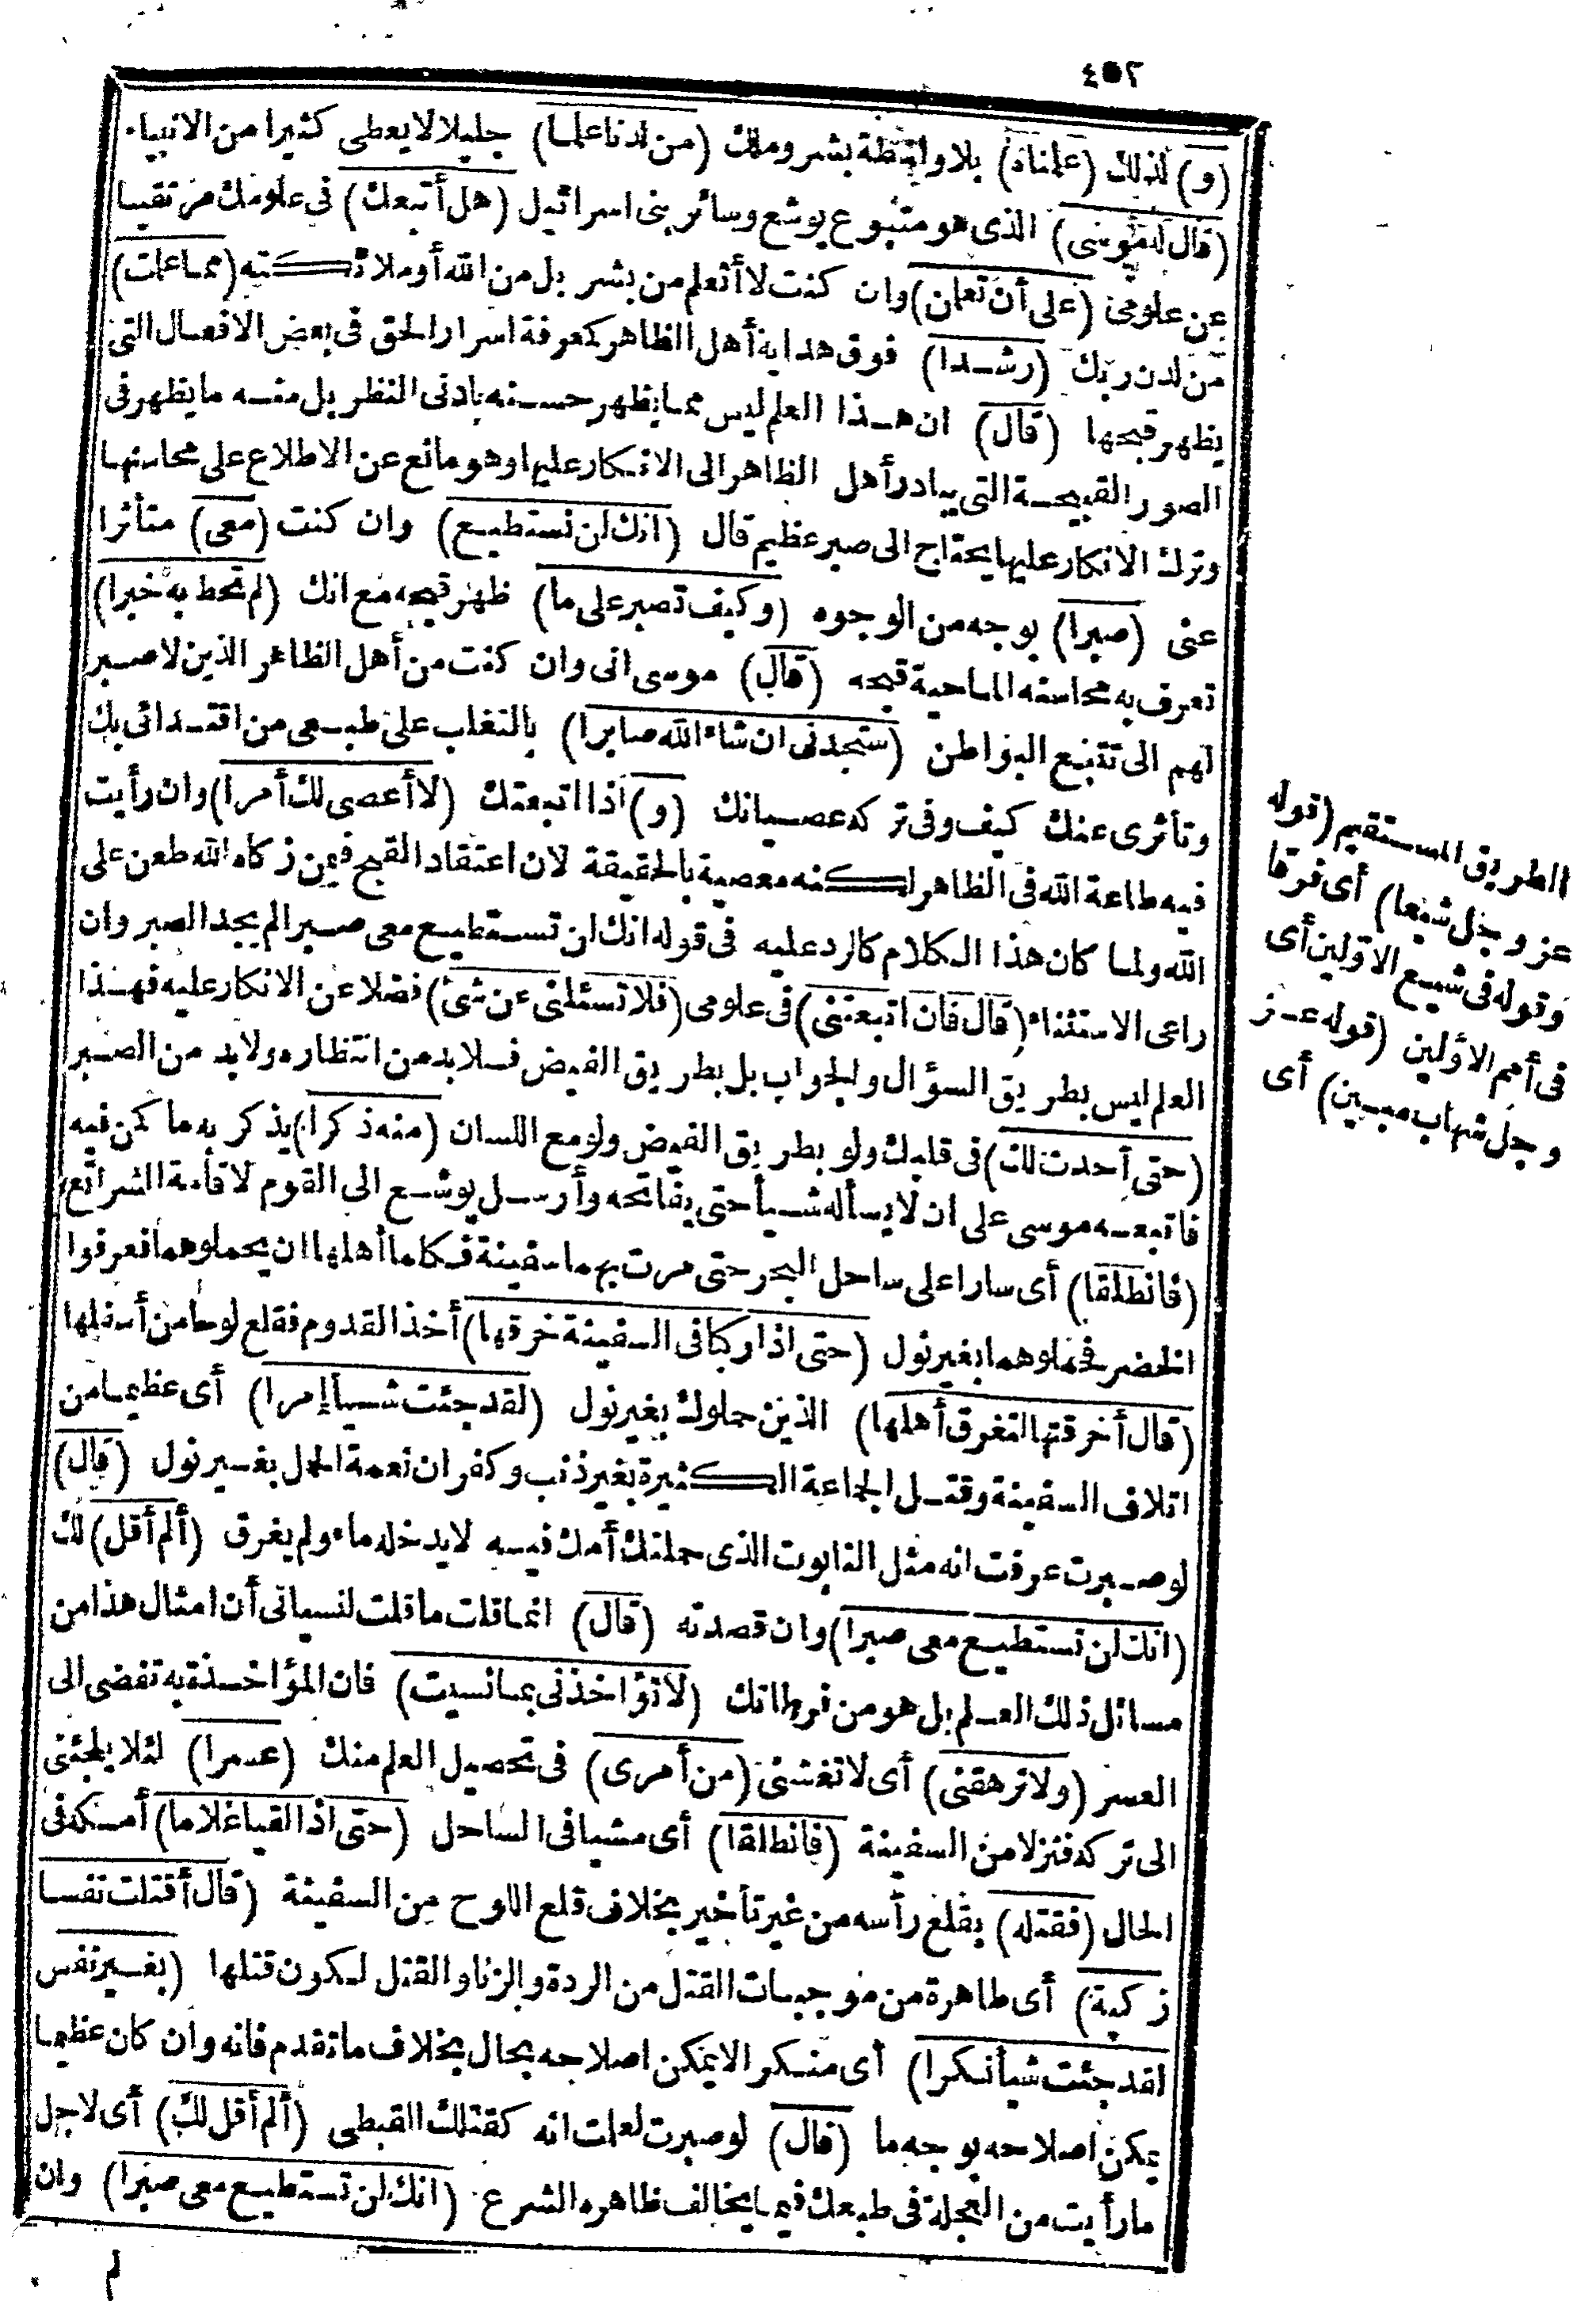 ٤٥٢
(و) لذلك (علمناه) بلا واسطة بشر وملك (من لدنا علما) جليلا لا يعطى كثيرا من الانبياء
(قال له موسى) الذى هو متبوع يوشع وسائر بنى اسرائيل (هل أتبعك) فى علومك مرتقيا
عن علومى (على أن تعلمن) وان كنت لا أتعلم من بشر بل من الله أو ملائكته (مما علمت)
من لدن ربك (رشدا) فوق هداية أهل الظاهر كمعرفة اسرار الحق فى بعض الافعال التى
يظهر قبحها (قال) ان هذا العلم ليس مما يظهر حسنه بادنى النظر بل منه ما يظهر فى
الصور القبيحة التى يبادر أهل الظاهر الى الانكار عليها وهو مانع عن الاطلاع على محاسنها
وترك الانكار عليها يحتاج الى صبر عظيم قال (انك لن تستطيع) وان كنت (معى) متأثرا
عنى (صبرا) بوجه من الوجوه (وكيف تصبر على ما) ظهر قبحه مع انك (لم تحط به خبرا)
تعرف به محاسنه الماحية قبحه (قال) موسى انى وان كنت من أهل الظاهر الذين لا صبر
لهم الى تتبع البواطن (ستجدنى ان شاء الله صابرا) بالتغلب على طبعى من اقتدائى بك
وتأثرى عنك كيف وفى تركه عصيانك (و) اذا اتبعتك (لا أعصى لك أمرا) وان رأيت
فيه طاعة الله فى الظاهر لكنه معصية بالحقيقة لان اعتقاد القبح فيمن زكاه الله طعن على
الله ولما كان هذا الكلام كالرد عليه فى قوله انك لن تستطيع معى صبرا لم يجد الصبر وان
راعى الاستثناء (قال فان اتبعتنى) فى علومى (فلا تسئلنى عن شئ) فضلا عن الانكار عليه فهذا
العلم ليس بطريق السؤال والجواب بل بطريق الفيض فلا بد من انتظاره ولا بد من الصبر
(حتى أحدث لك) فى قلبك ولو بطريق الفيض ولو مع اللسان (منه ذكرا) يذكر به ما كمن فيه
فاتبعه موسى على ان لا يسأله شيأ حتى يفاتحه وأرسل يوشع الى القوم لاقامة الشرائع
(فانطلقا) أى سارا على ساحل البحر حتى مرت بهما سفينة فكلما أهلها ان يحملوهما فعرفوا
الخضر فحملوهما بغير نول (حتى اذا ركبا فى السفينة خرقها) أخذ القدوم فقلع لوحا من أسفلها
(قال أخرقتها لتغرق أهلها) الذين حملوك بغير نول (لقد جئت شيأ إمرا) أى عظيما من
اتلاف السفينة وقتل الجماعة الكثيرة بغير ذنب وكفران نعمة الحمل بغير نول (قال)
لو صبرت عرفت انه مثل التابوت الذى حملتك أمك فيه لا يدخله ماء ولم يغرق (ألم أقل) لك
(انك لن تستطيع معى صبرا) وان قصدته (قال) انما قلت ما قلت لنسيانى أن امثال هذا من
مسائل ذلك العلم بل هو من فرطاتك (لا تؤاخذنى بما نسيت) فان المؤاخذة به تفضى الى
العسر (ولا ترهقنى) أى لا تغشنى (من أمرى) فى تحصيل العلم منك (عسرا) لئلا يلجئنى
الى تركه فنزلا من السفينة (فانطلقا) أى مشيا فى الساحل (حتى اذا لقيا غلاما) أمسكه فى
الحال (فقتله) بقلع رأسه من غير تأخير بخلاف قلع اللوح من السفينة (قال أقتلت نفسا
زكية) أى طاهرة من موجبات القتل من الردة والزنا والقتل ليكون قتلها (بغير نفس
لقد جئت شيأ نكرا) أى منكرا لا يمكن اصلاحه بحال بخلاف ما تقدم فانه وان كان عظيما
يمكن اصلاحه بوجه ما (قال) لو صبرت لعلمت انه كقتلك القبطى (ألم أقل لك) أى لاجل
ما رأيت من العجلة فى طبعك فيما يخالف ظاهره الشرع (انك لن تستطيع معى صبرا) وان
لم
الطريق المستقيم (قوله
عز وجل شيعا) أى فرقا
وقوله فى شيع الاولين أى
فى أمم الاولين (قوله عز
وجل شهاب مبين) أى